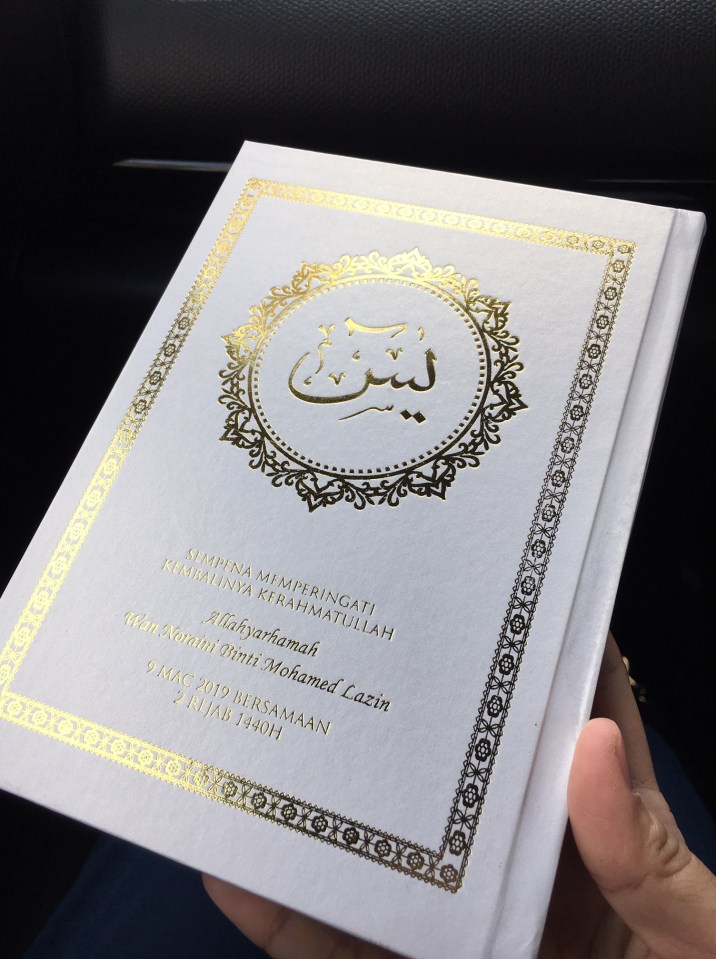 يس
SEMPENA MEMPERINGATI
KEMBALINYA KERAHMATULLAH
Allahyarhamah
Wan Noraini Binti Mohamed Lazin
9 MAC 2019 BERSAMAAN
2 REJAB 1440H